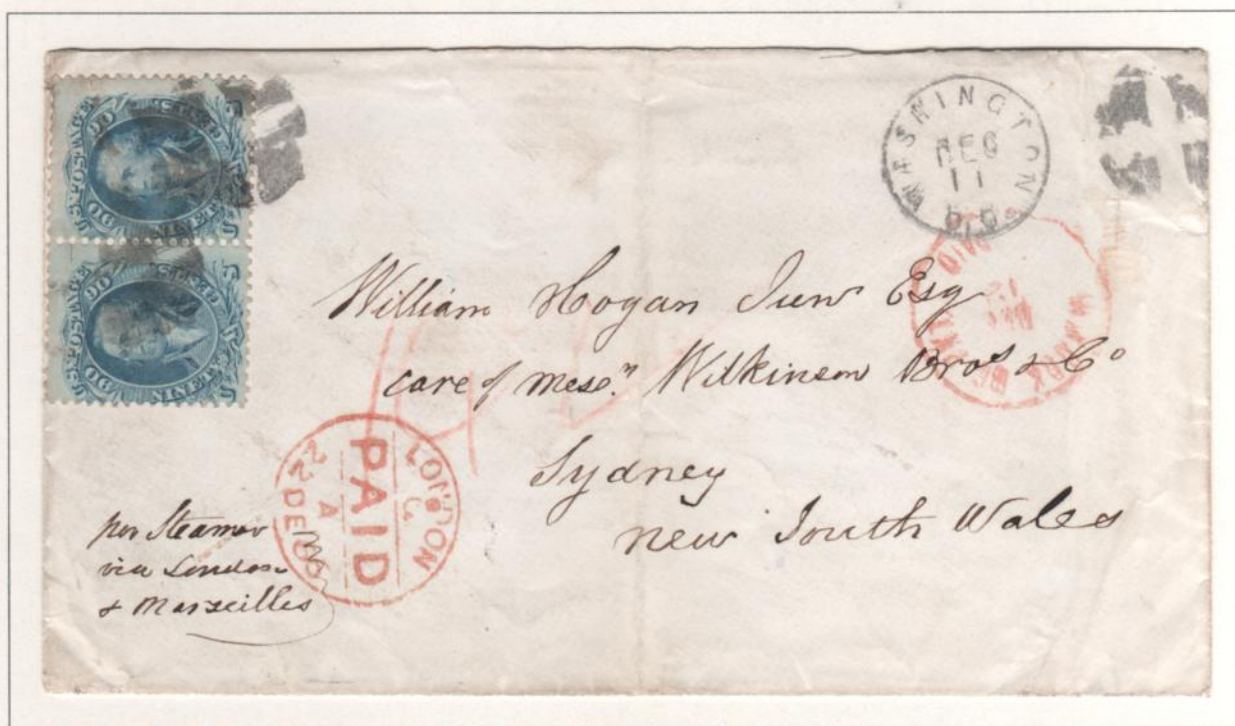 U.S. POSTAGE
90 90
NINETY
U.S. POSTAGE
90 90
NINETY
WASHINGTON
DEC
11
PAID
William Hogan Junr Esq
care of Messrs Wilkinson Bros & Co
Sydney
New South Wales
LONDON
C
PAID
A
22 DE
per Steamer
via London
& Marseilles